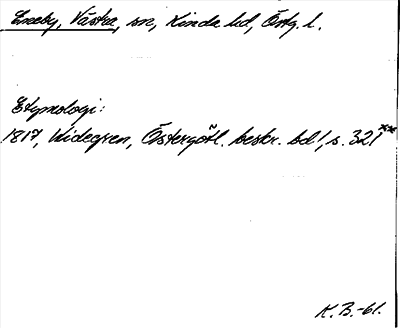 Eneby, Västra, sn, Kinda hd, Östg. l.
Etymologi:
1817, Widegren, Östergötl. beskr. bd 1, s. 321 **
K. B. -61.